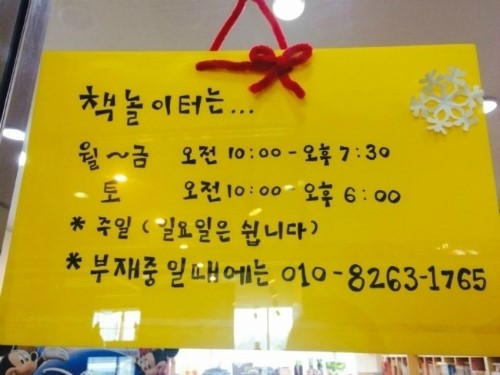 책놀이터는...
월~금 오전 10:00 - 오후 7:30
토 오전 10:00 - 오후 6:00
* 주일 (일요일은 쉽니다)
* 부재중일때에는 010-8263-1765